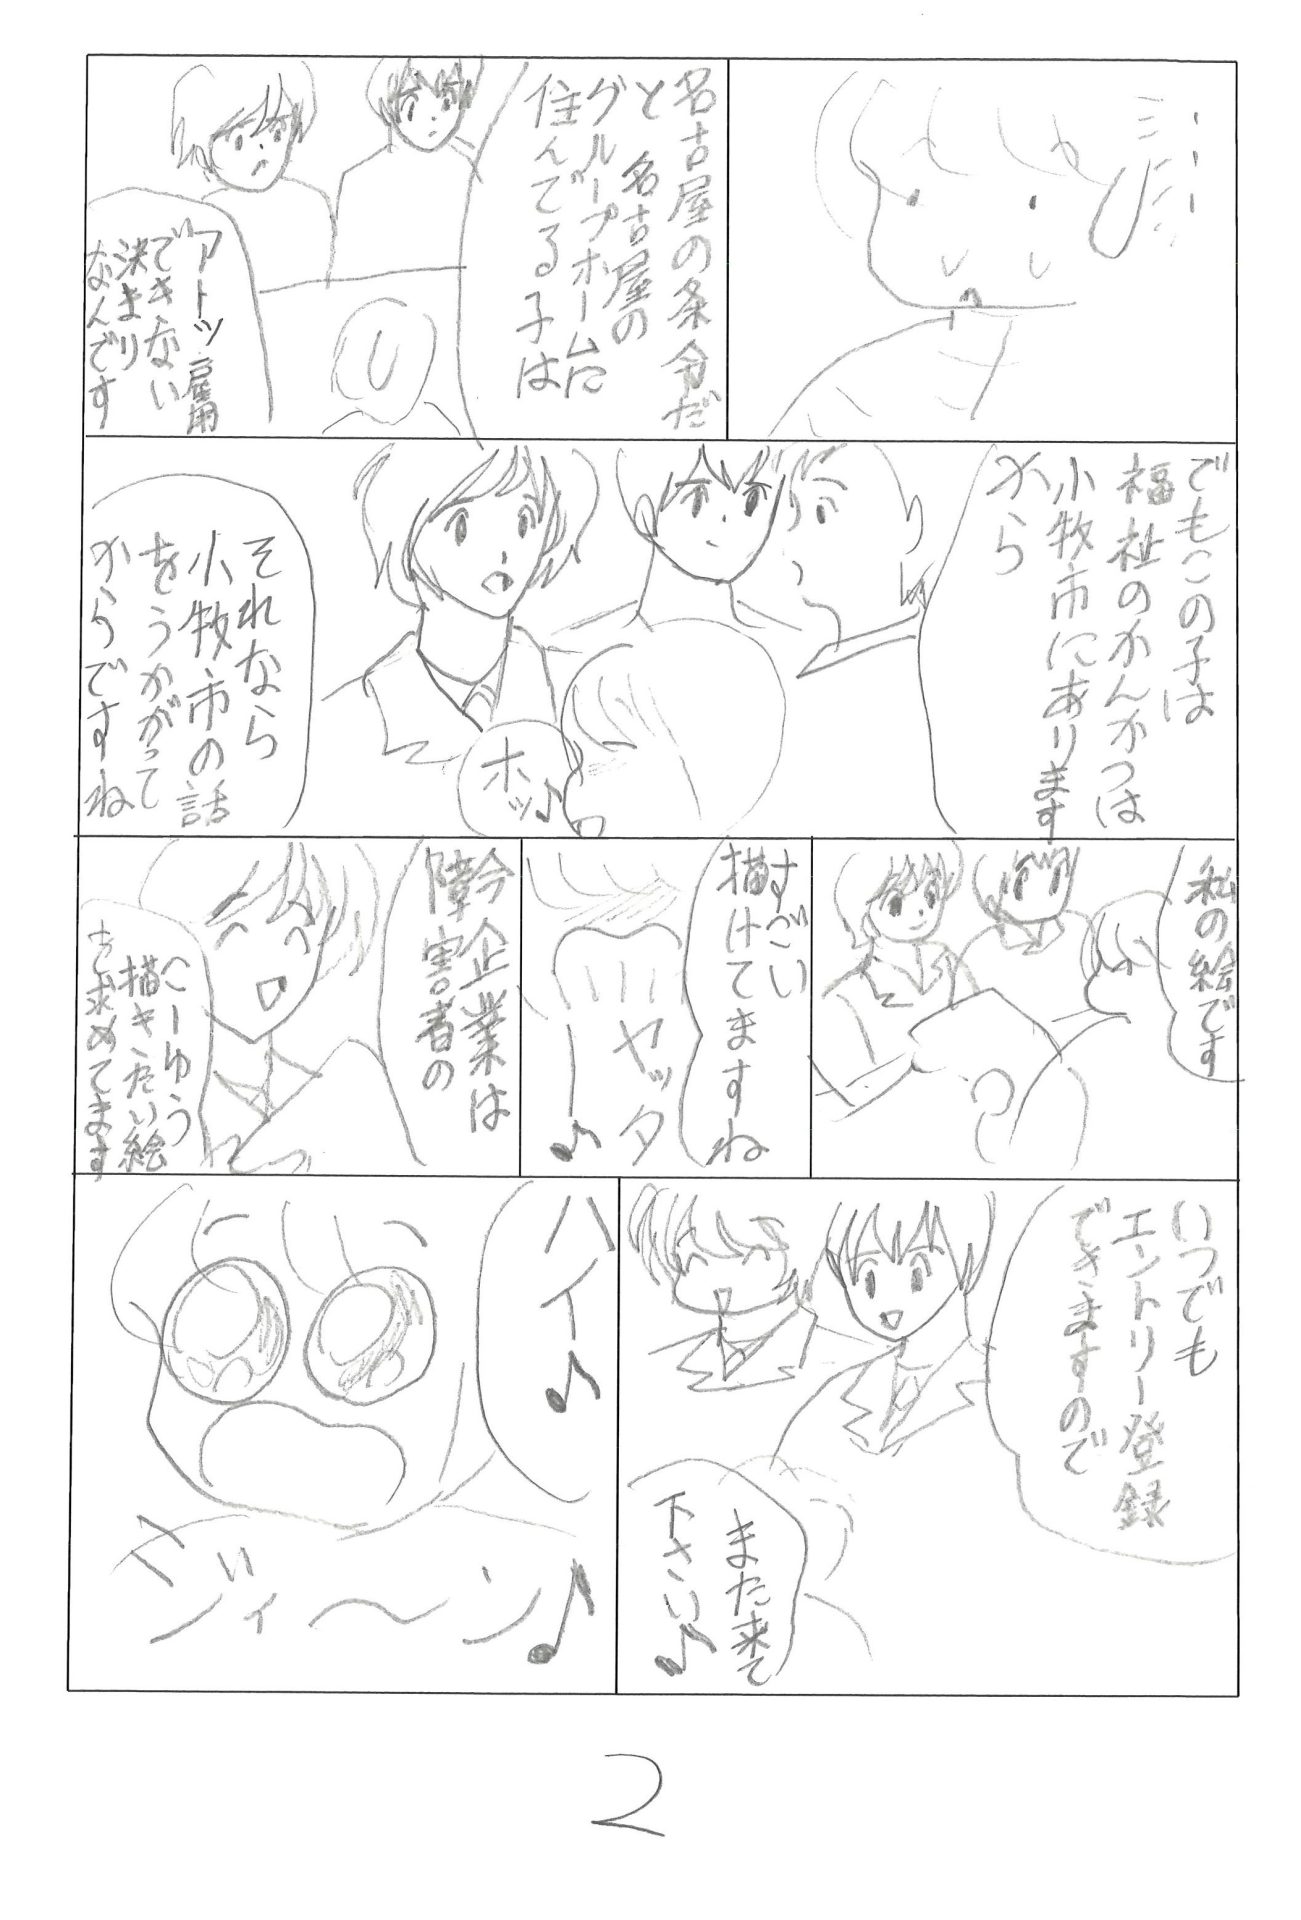 名古屋の条令だ
と名古屋の
グループホームに
住んでる子は
アトツ雇用
できない
決まり
なんです
でもこの子は
福祉のかんかつは
小牧市にあります
から
それなら
小牧市の話
をうかがって
からですね
ホッ♪
私の絵です
すごい
描けてますね
ヤッタ
♪
今企業は
障害者の
こーゆう
描きたい絵
を求めてます
いつでも
エントリー登録
できますので
また来て
下さい♪
ハイ♪
2